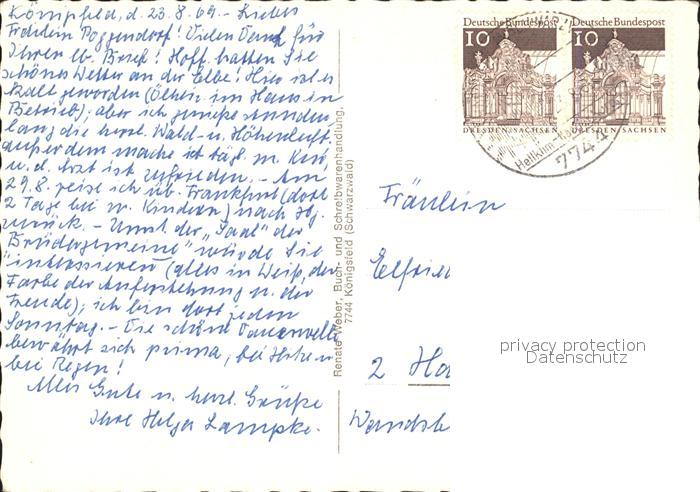 Königsfeld, d. 23.8.69.- Liebes
Fräulein Poggendorf! Vielen Dank für
Ihren lb. Brief! Hoff. hatten Sie
schönes Wetter an der Elbe! Hier ist es
kalt geworden (Öfchen im Haus in
Betrieb); aber ich genieße stunden-
lang die herrl. Wald- u. Höhenluft.
außerdem mache ich tägl. m. Kur
u. d. Arzt ist zufrieden. - Am
29.8. reise ich üb. Frankfurt (dort
2 Tage bei m. Kindern) nach Hbg.
zurück. - Unst. der "Saal" der
Brüdergemeine" würde Sie
interessieren (alles in Weiß, der
Farbe der Auferstehung u. der
Freude); ich bin dort jeden
Sonntag. - Die schöne Dauerwelle
bewährt sich prima, bei Hitze u.
bei Regen!
Alles Gute u. herzl. Grüße
Ihre Helga Lampke.
Renate Weber, Buch- und Schreibwarenhandlung,
7744 Königsfeld (Schwarzwald)
Deutsche Bundespost
10
DRESDEN/SACHSEN
Deutsche Bundespost
10
DRESDEN/SACHSEN
Heilklim.
7744
Fräulein
Elfried
2 Ha
Wandsb
privacy protection
Datenschutz